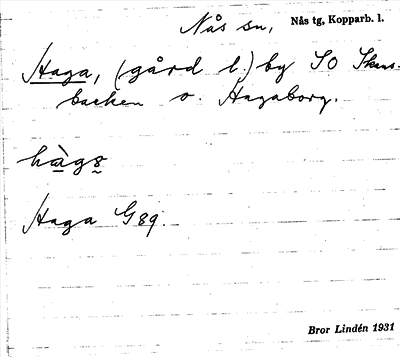 Nås sn, Nås tg, Kopparb. l.
Haga, (gård l.) by SO Skans-
backen o. Hagaborg.
hàgs
Haga G 89.
Bror Lindén 1931